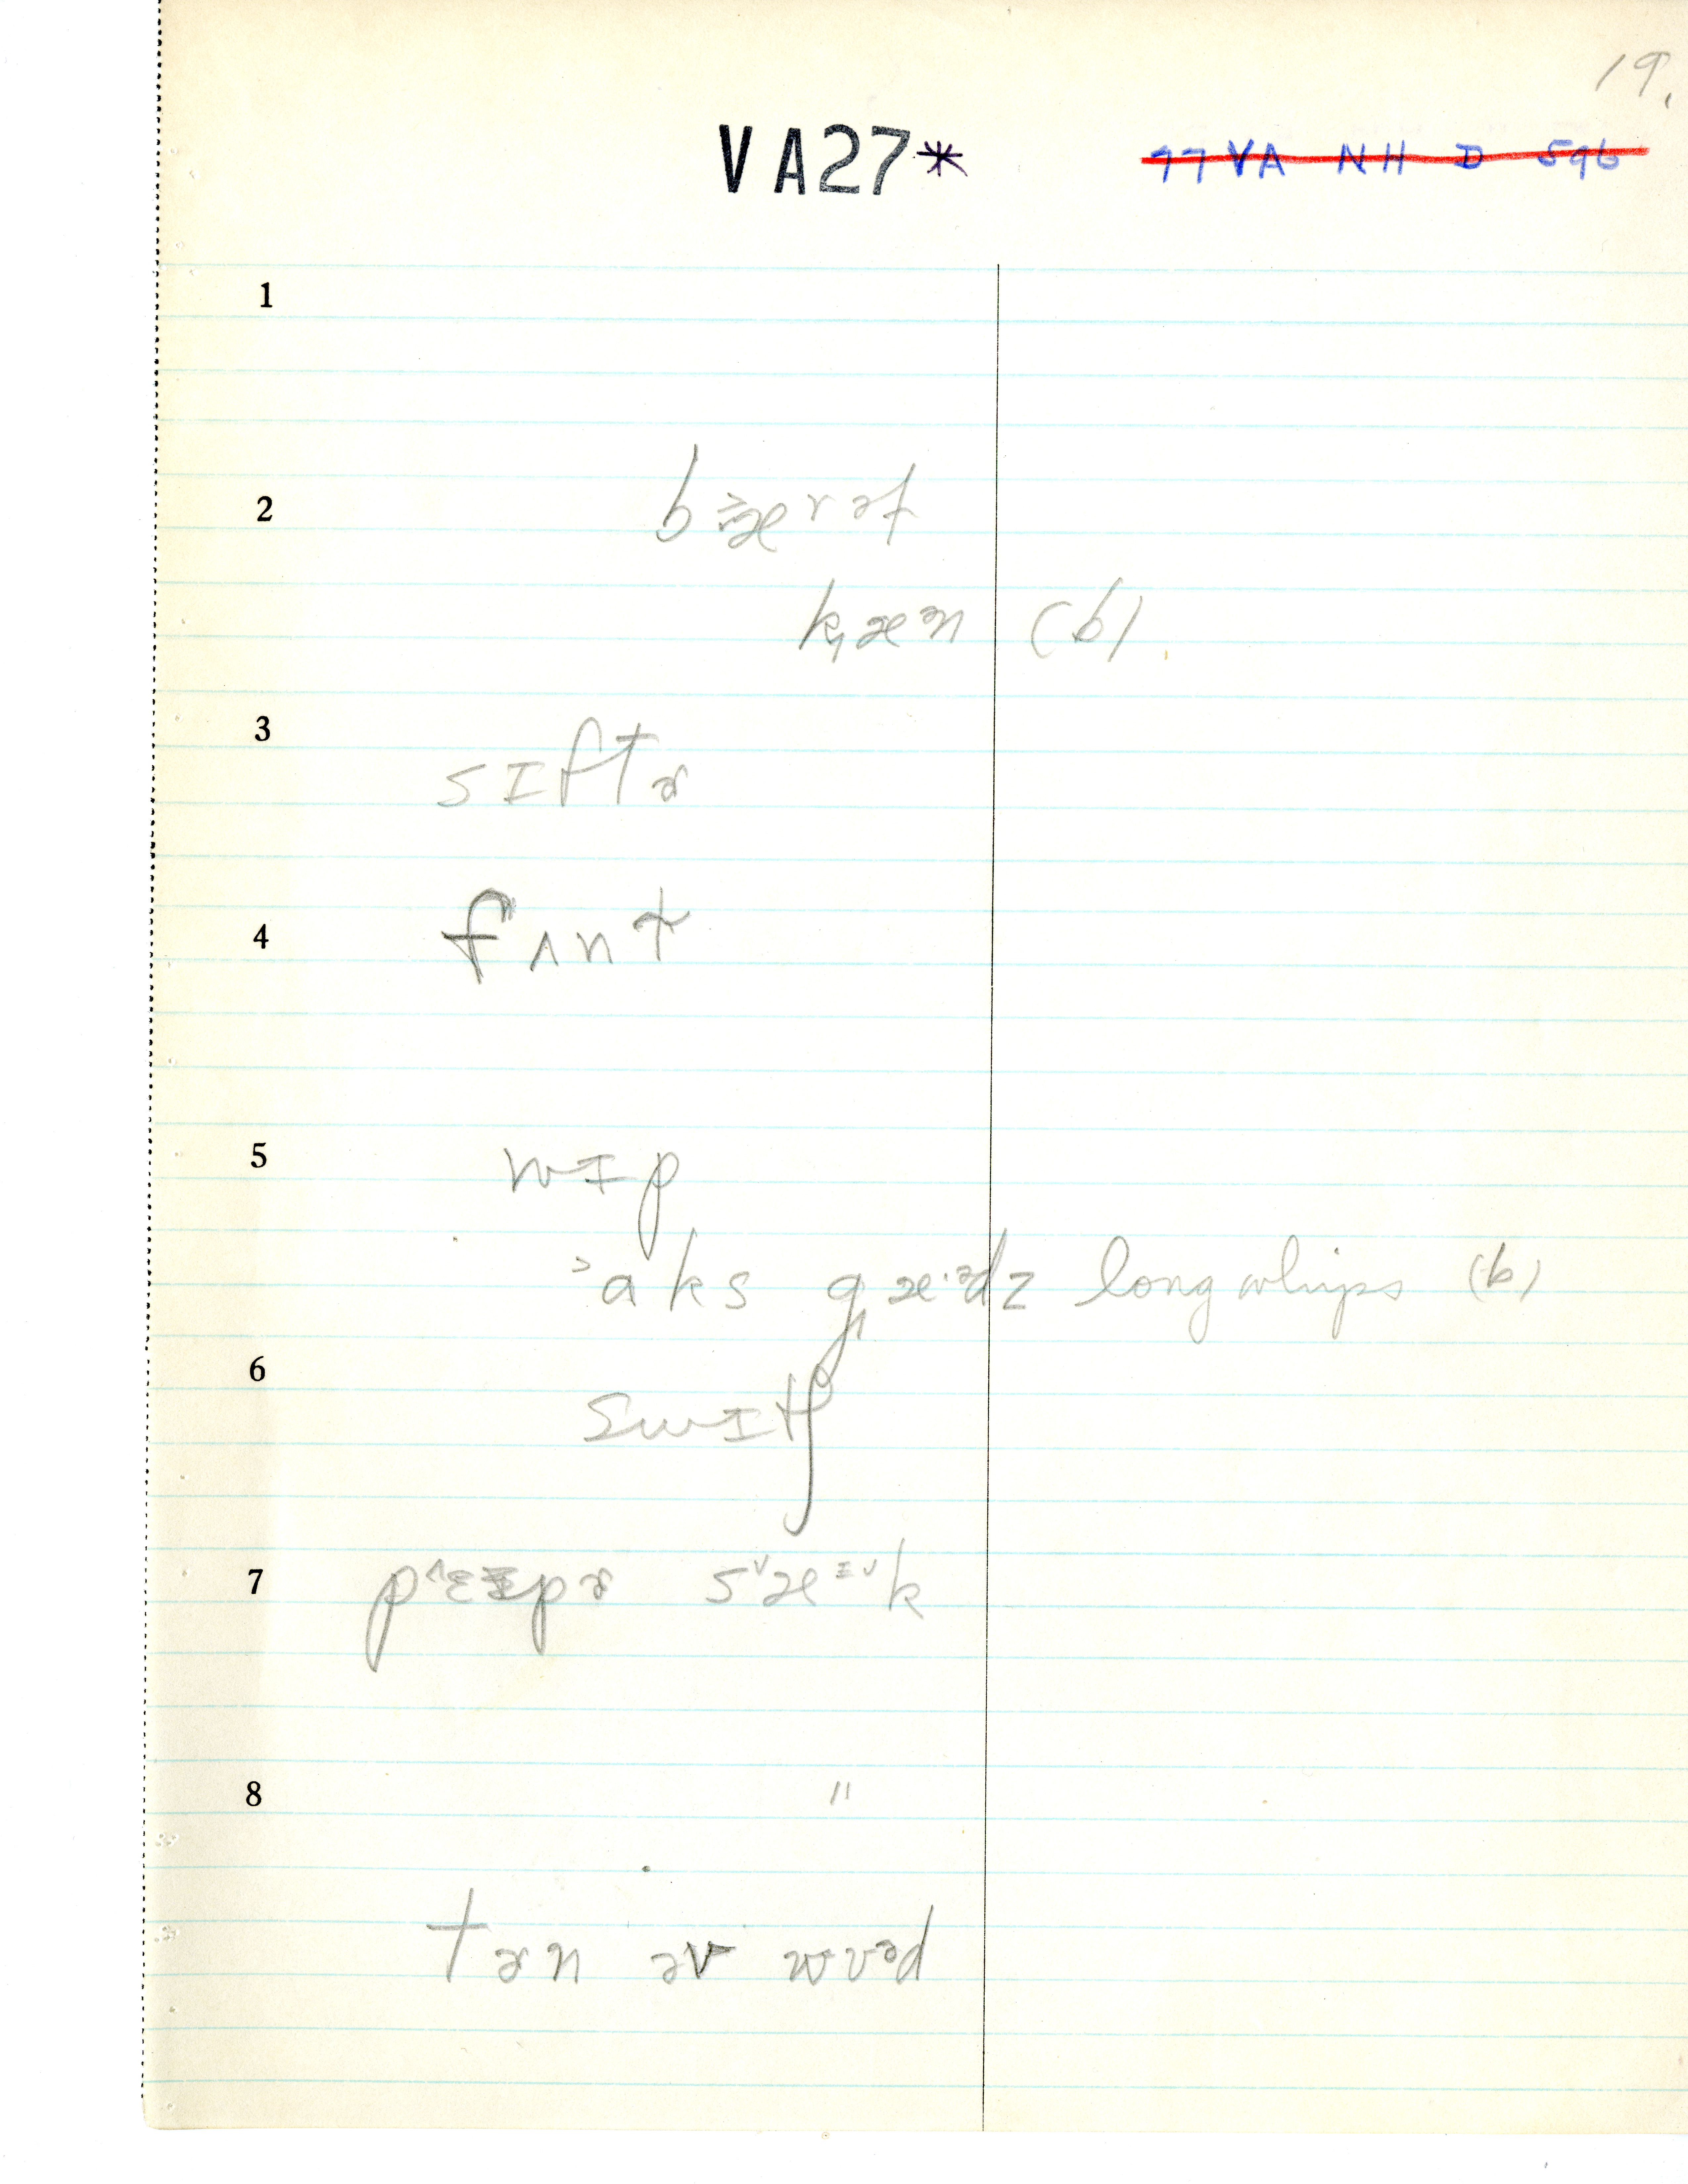 19.
VA27* 97 VA NH D 596
1
2 bæ̵rəl
kæən (b)
3 sɪftɚ
4 fʌnɫ
5 wɪp
ˀaks gæ·ədz long whips (b)
6 swɪtʃ
7 pʌɛɪpɚ sˇæɪˇk
8 "
tɚn əv wʊəd